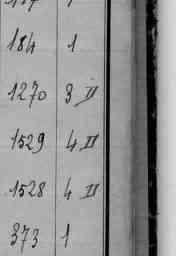 184 1
1270 3 II
1529 4 II
1528 4 II
373 1